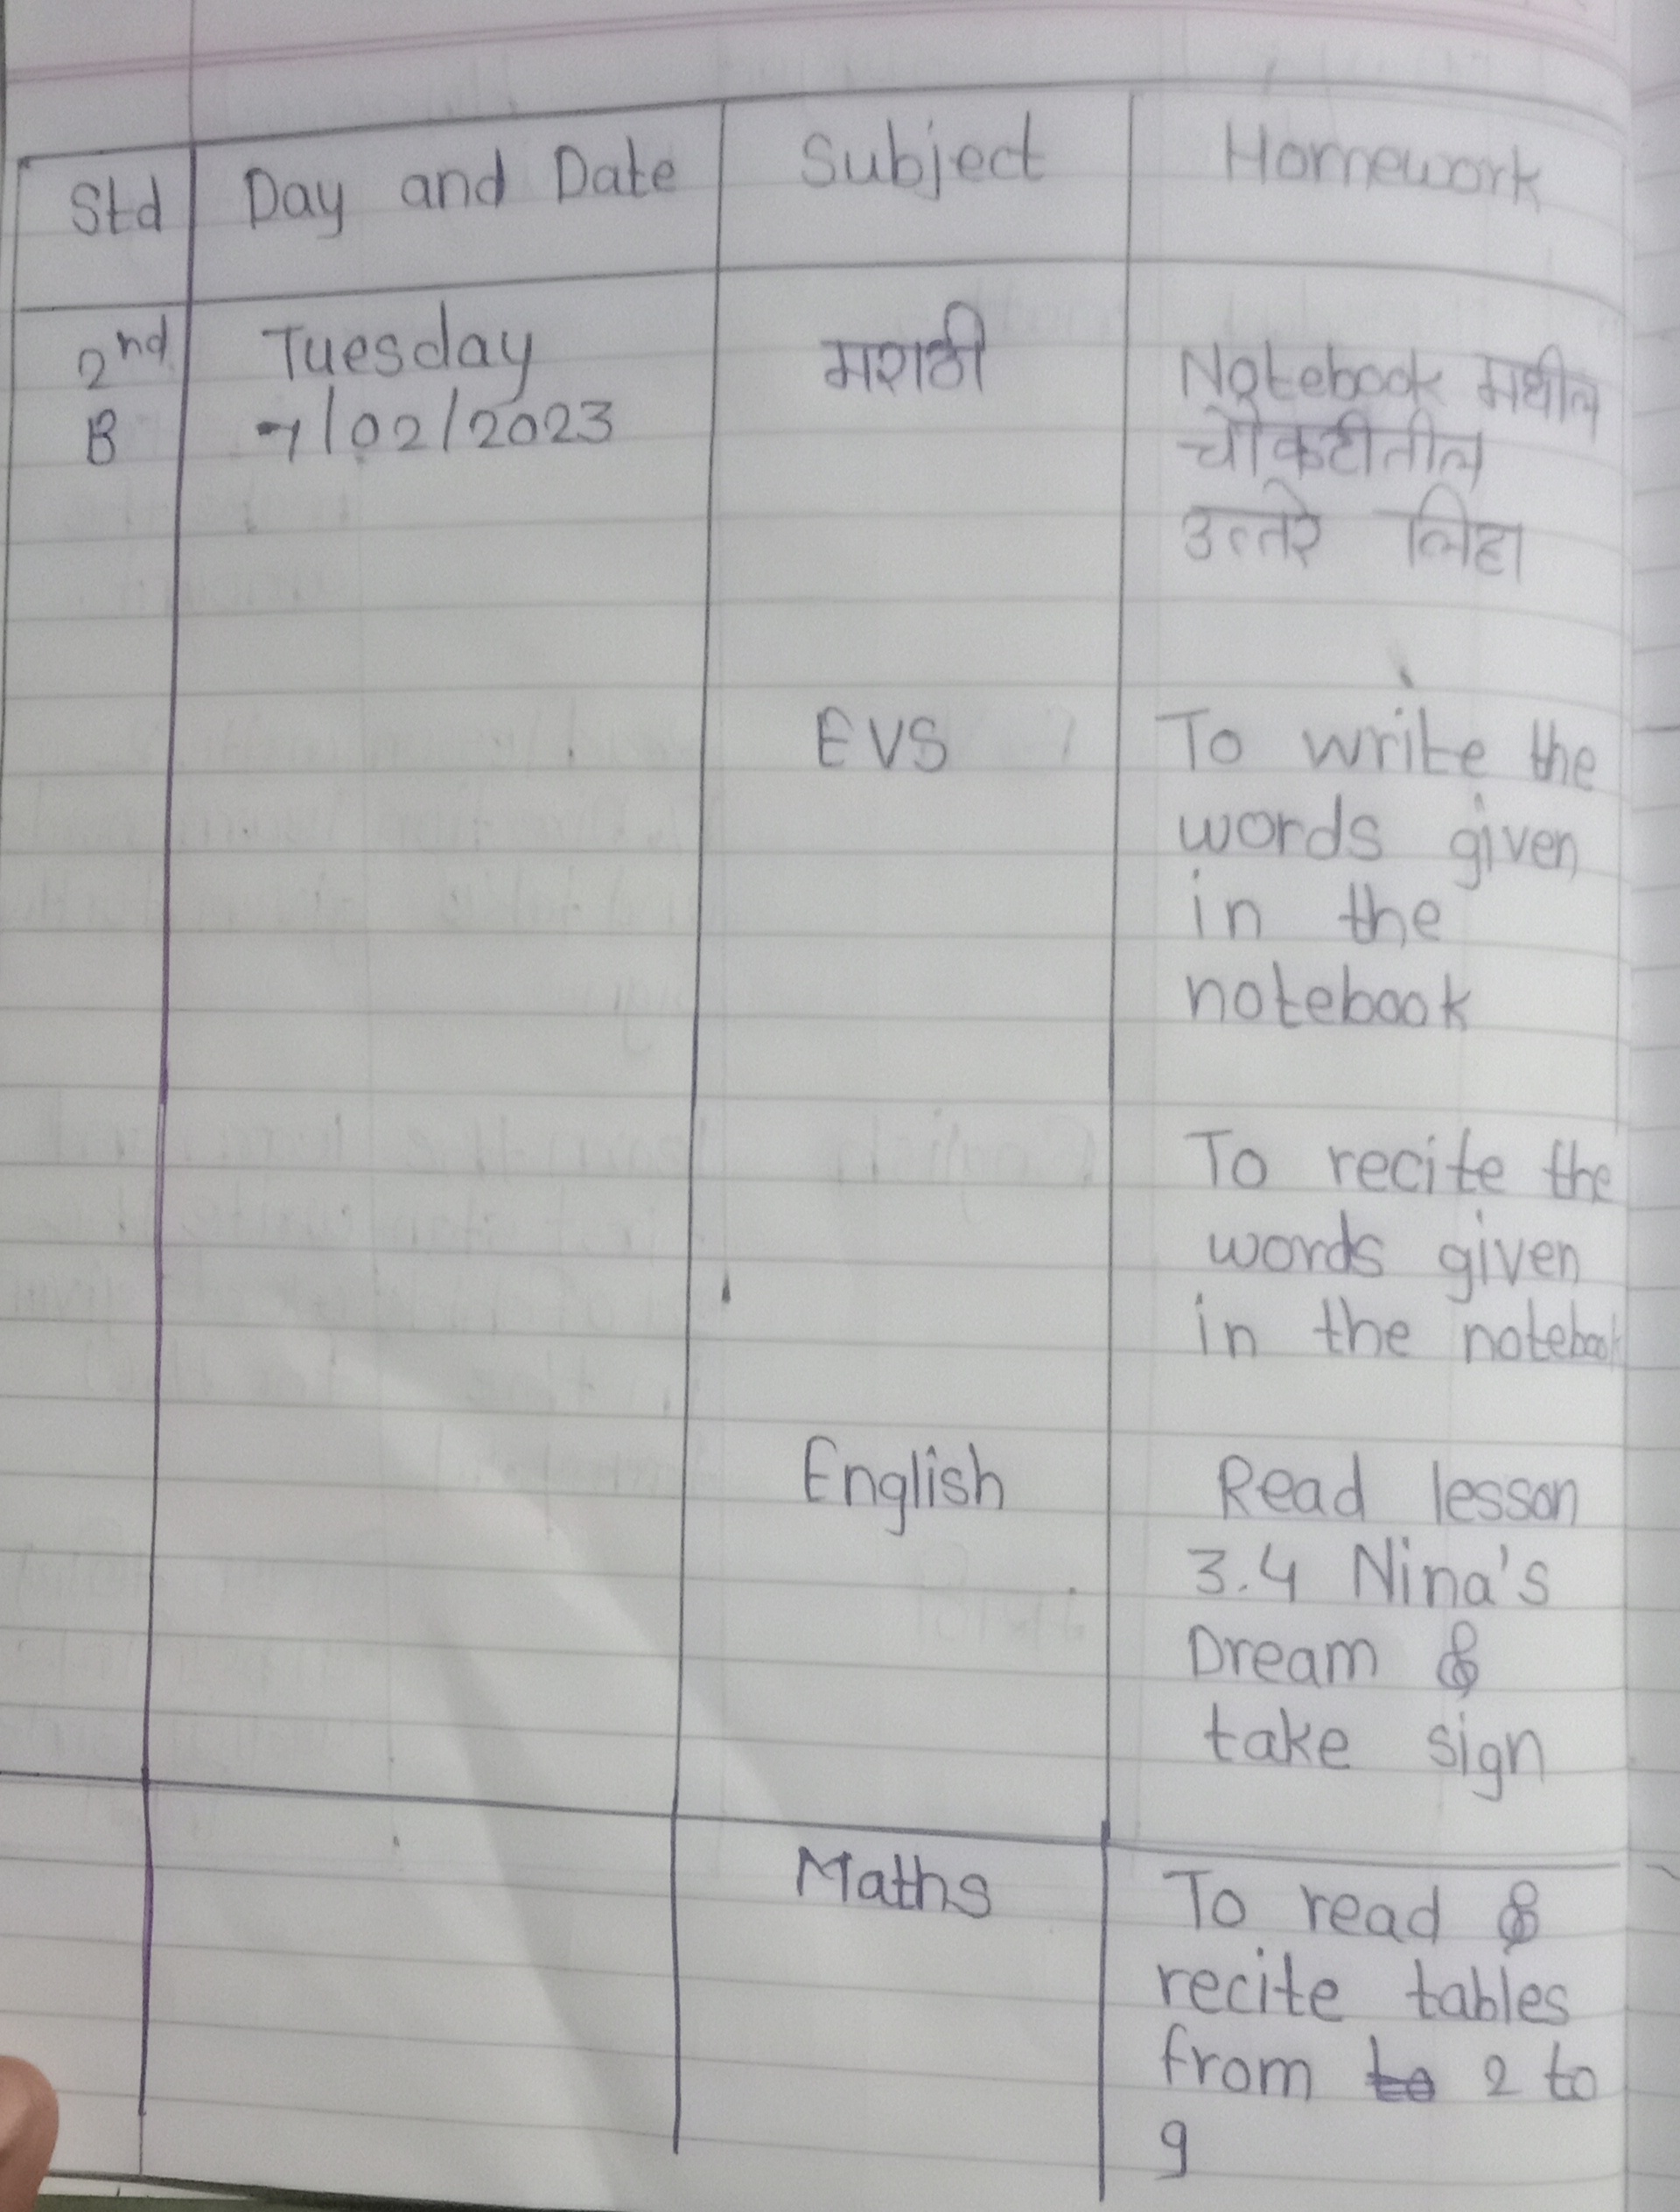 Std Day and Date Subject Homework
2nd Tuesday मराठी Notebook मधील
B 7/02/2023 चौकटीतील
उत्तरे लिहा
EVS To write the
words given
in the
notebook
To recite the
words given
in the notebook
English Read lesson
3.4 Nina's
Dream &
take sign
Maths To read &
recite tables
from to 2 to
9